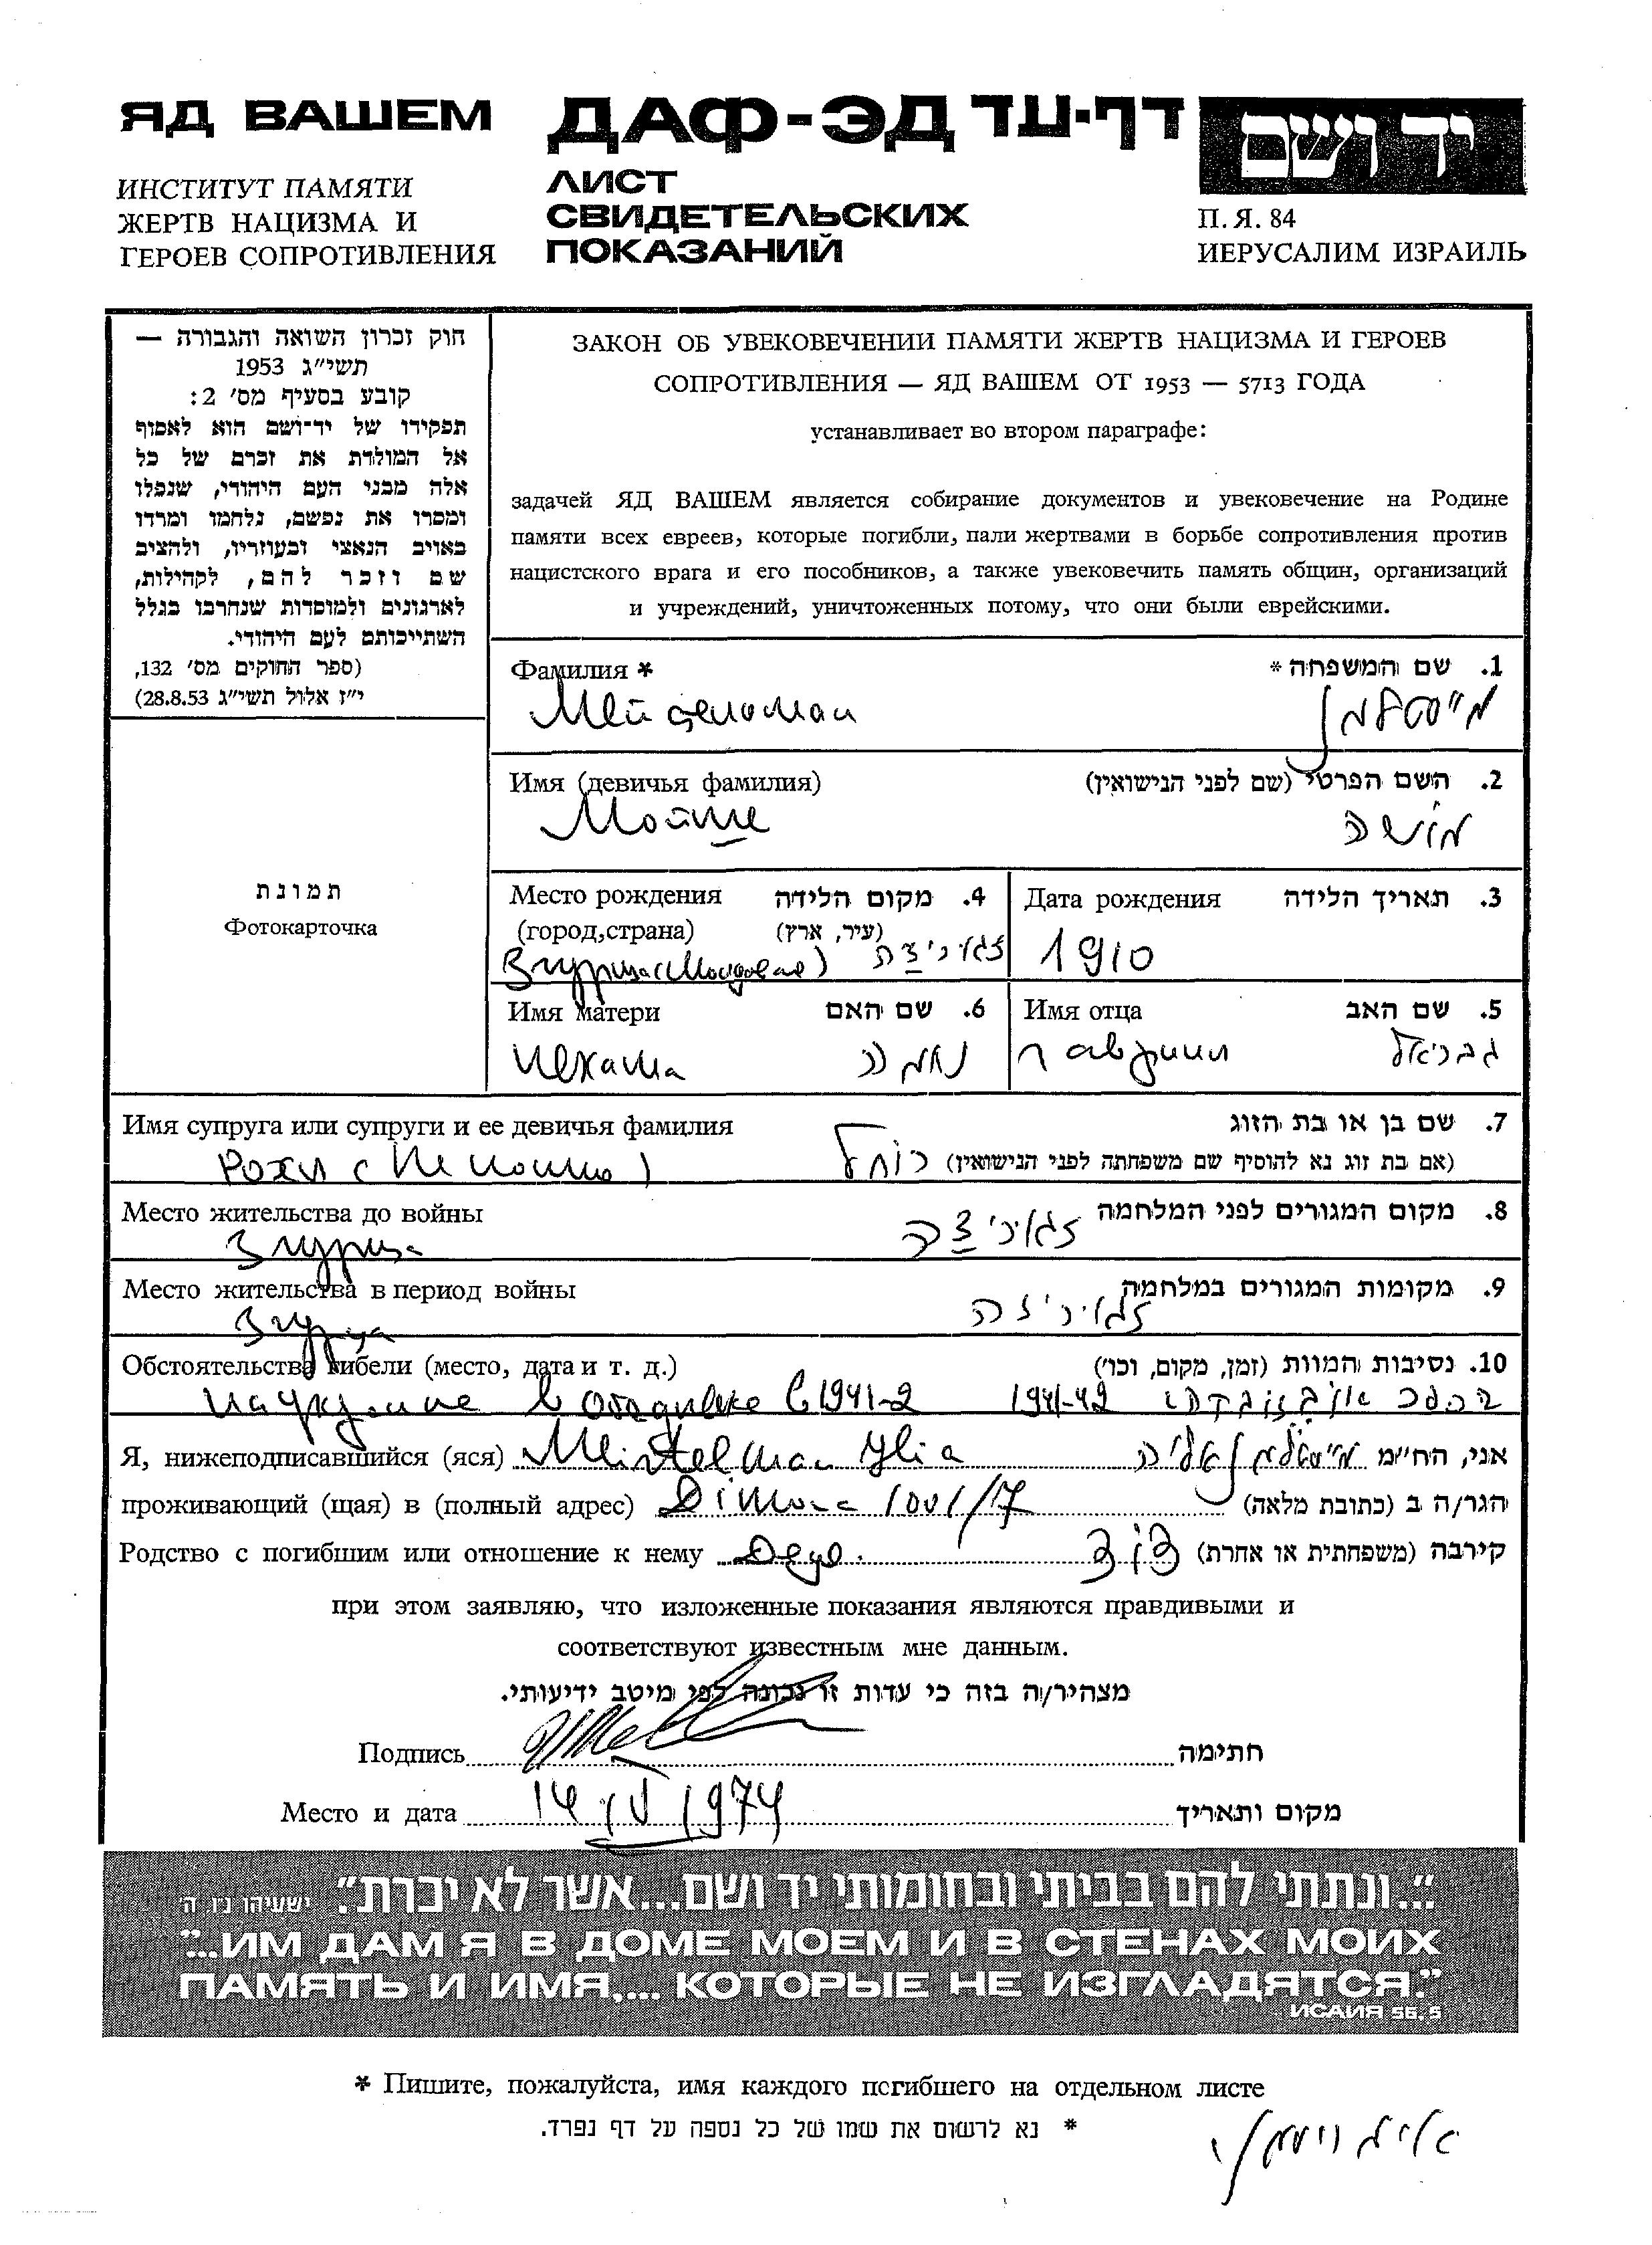 ЯД ВАШЕМ
ИНСТИТУТ ПАМЯТИ
ЖЕРТВ НАЦИЗМА И
ГЕРОЕВ СОПРОТИВЛЕНИЯ
ДАФ-ЭД דף-עד
ЛИСТ
СВИДЕТЕЛЬСКИХ
ПОКАЗАНИЙ
יד ושם
П. Я. 84
ИЕРУСАЛИМ ИЗРАИЛЬ
חוק זכרון השואה והגבורה —
תשי״ג 1953
קובע בסעיף מס׳ 2:
תפקידו של יד-ושם הוא לאסוף
אל המולדת את זכרם של כל
אלה מבני העם היהודי, שנפלו
ומסרו את נפשם, נלחמו ומרדו
באויב הנאצי ובעוזריו, ולהציב
שם וזכר להם, לקהילות,
לארגונים ולמוסדות שנחרבו בגלל
השתייכותם לעם היהודי.
(ספר החוקים מס׳ 132,
י״ז אלול תשי״ג 28.8.53)
תמונת
Фотокарточка
ЗАКОН ОБ УВЕКОВЕЧЕНИИ ПАМЯТИ ЖЕРТВ НАЦИЗМА И ГЕРОЕВ
СОПРОТИВЛЕНИЯ — ЯД ВАШЕМ ОТ 1953 — 5713 ГОДА
устанавливает во втором параграфе:
задачей ЯД ВАШЕМ является собирание документов и увековечение на Родине
памяти всех евреев, которые погибли, пали жертвами в борьбе сопротивления против
нацистского врага и его пособников, а также увековечить память общин, организаций
и учреждений, уничтоженных потому, что они были еврейскими.
Фамилия * 1. שם המשפחה *
מייסטלמן
Имя (девичья фамилия) 2. השם הפרטי (שם לפני הנישואין)
Мойше מושה
Место рождения 4. מקום הלידה
(город,страна) (עיר, ארץ)
Згурица (Молдова) זגוריצה
Дата рождения 3. תאריך הלידה
1910
Имя матери 6. שם האם
Нехама נחמה
Имя отца 5. שם האב
גבריאל
Имя супруга или супруги и ее девичья фамилия 7. שם בן או בת הזוג
(אם בת זוג נא להוסיף שם משפחתה לפני הנישואין)
Рохл רוחל
Место жительства до войны 8. מקום המגורים לפני המלחמה
Згурица זגוריצה
Место жительства в период войны 9. מקומות המגורים במלחמה
Згурица
Обстоятельства гибели (место, дата и т. д.) 10. נסיבות המוות (זמן, מקום, וכו׳)
в Ободовке в 1941-2 1941-42
Я, нижеподписавшийся (яся) Meistelman Ilia אני, הח״מ
проживающий (щая) в (полный адрес) Dimona 1001/7 הגר/ה ב (כתובת מלאה)
Родство с погибшим или отношение к нему Дядя. דוד קירבה (משפחתית או אחרת)
при этом заявляю, что изложенные показания являются правдивыми и
соответствуют известным мне данным.
מצהיר/ה בזה כי עדות זו נכונה לפי מיטב ידיעותי.
Подпись חתימה
Место и дата 14 IV 1974 מקום ותאריך
"...ונתתי להם בביתי ובחומותי יד ושם...אשר לא יכרת". ישעיהו נ״ו, ה׳
"...ИМ ДАМ Я В ДОМЕ МОЕМ И В СТЕНАХ МОИХ
ПАМЯТЬ И ИМЯ,... КОТОРЫЕ НЕ ИЗГЛАДЯТСЯ."
ИСАИЯ 56, 5
* Пишите, пожалуйста, имя каждого погибшего на отдельном листе
* נא לרשום את שמו של כל נספה על דף נפרד.